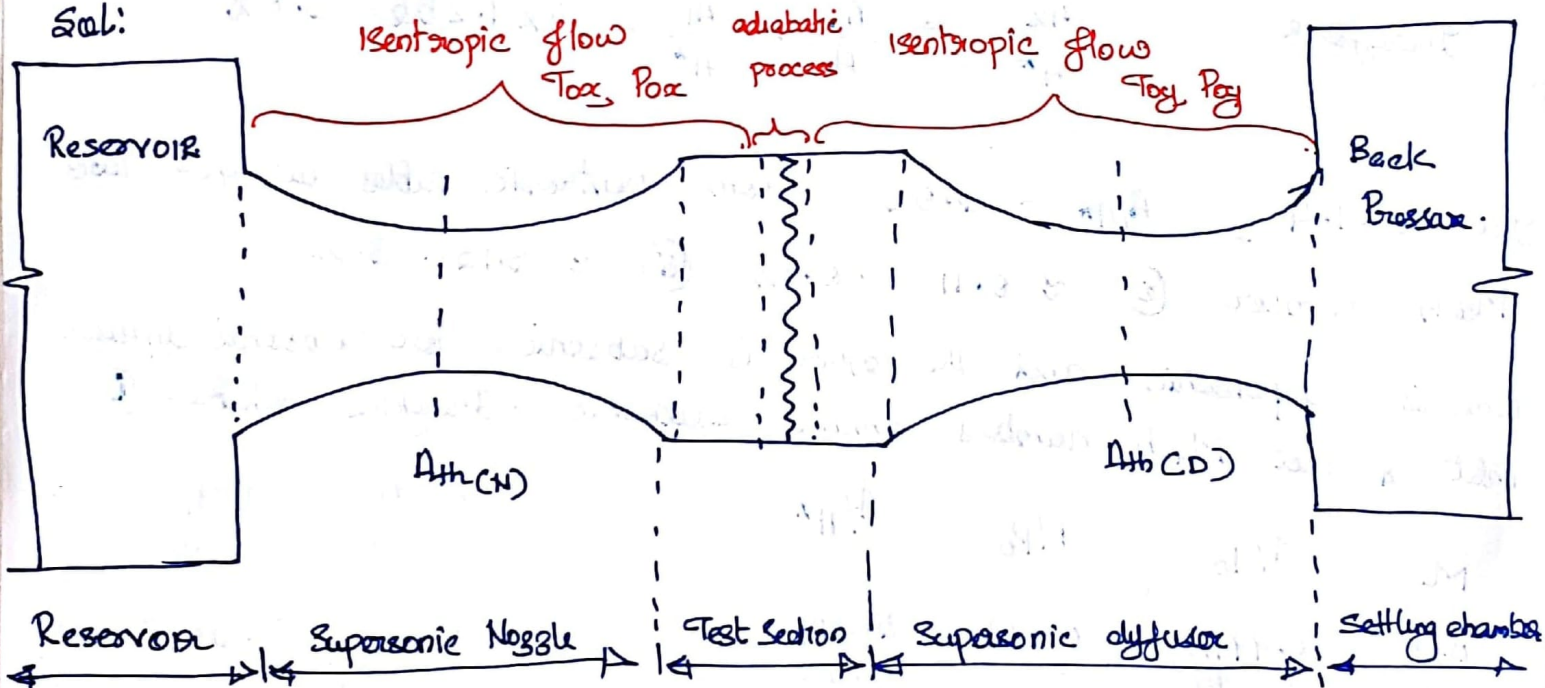 Sol:
Isentropic flow
Tox, Pox
adiabatic
process
Isentropic flow
Toy, Poy
Reservoir
Back
Pressure.
Ath (N)
Ath (D)
Reservoir
Supersonic Nozzle
Test Section
Supersonic diffuser
Settling chamber